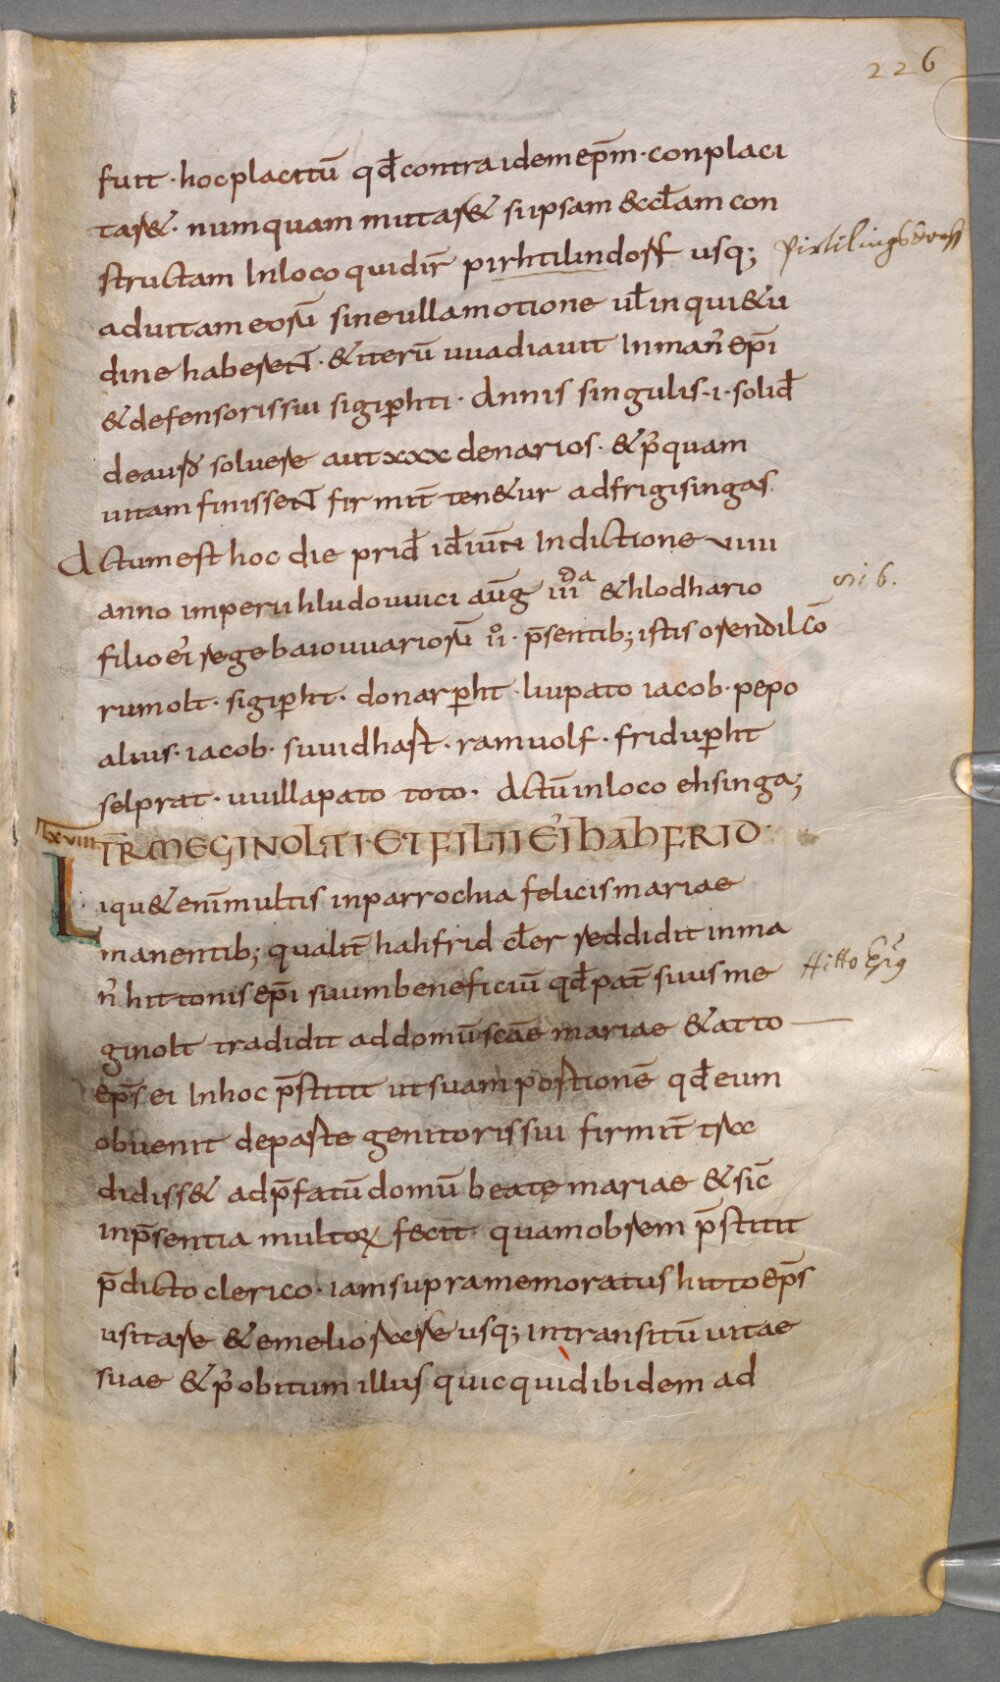 226
fuit · hoc placitū qđ contra idem ep̄m · conplaci
tar& · numquam mutar& sup̱sam &ccl̄am con
structam In loco qui dir̄ pirhtilindorf usq;
pirtilingsdorff
ad uitam eorū sine ulla motione ul̄ in qui&u
dine haberent · & iterū uuadiauit In man̄ ep̄i
& defensoris sui sigip̱hti · Annis singulis · i · solid̄
de auro soluere aut xxx denarios · & p̱quam
uitam finissent firmit̄ ten&ur ad frigisingas
Actum est hoc die prid̄ id̄ iun̄i Indictione viiii
anno imperii hludouuici auḡ iii & hlodhario
filio ei' rege baiouuariorū ii · p̄sentib; istis orendil cō
rumolt · sigip̱ht · donarp̱ht · liupato iacob · pepo
alius · iacob · suuidhart · ramuolf · fridup̱ht
selprat · uuillapato toto · Actū in loco ehsinga;
Lxviii TR MEGINOLTI · ET FILII EI' hahFRID ·
Liqu& enī multis in parrochia felicis mariae
manentib; qualit̄ hahfrid cl̄er reddidit in ma
n̄ hittonis ep̄i suum beneficiū qđ pat̄ suus me
Hitto Ep̄s
ginolt tradidit ad domū sc̄ae mariae & atto
ep̄s ei In hoc p̄stitit ut suam portionē qđ eum
obuenit de parte genitoris sui firmit̄ tra
didiss& ad p̄fatū domū beate mariae & sic̄
in p̄sentia multoꝝ fecit · quam ob rem p̄stitit
p̄dicto clerico · iam supra memoratus hitto ep̄s
usitare & emeliorare usq; in transitū uitae
suae & p̱ obitum illius quicquid ibidem ad